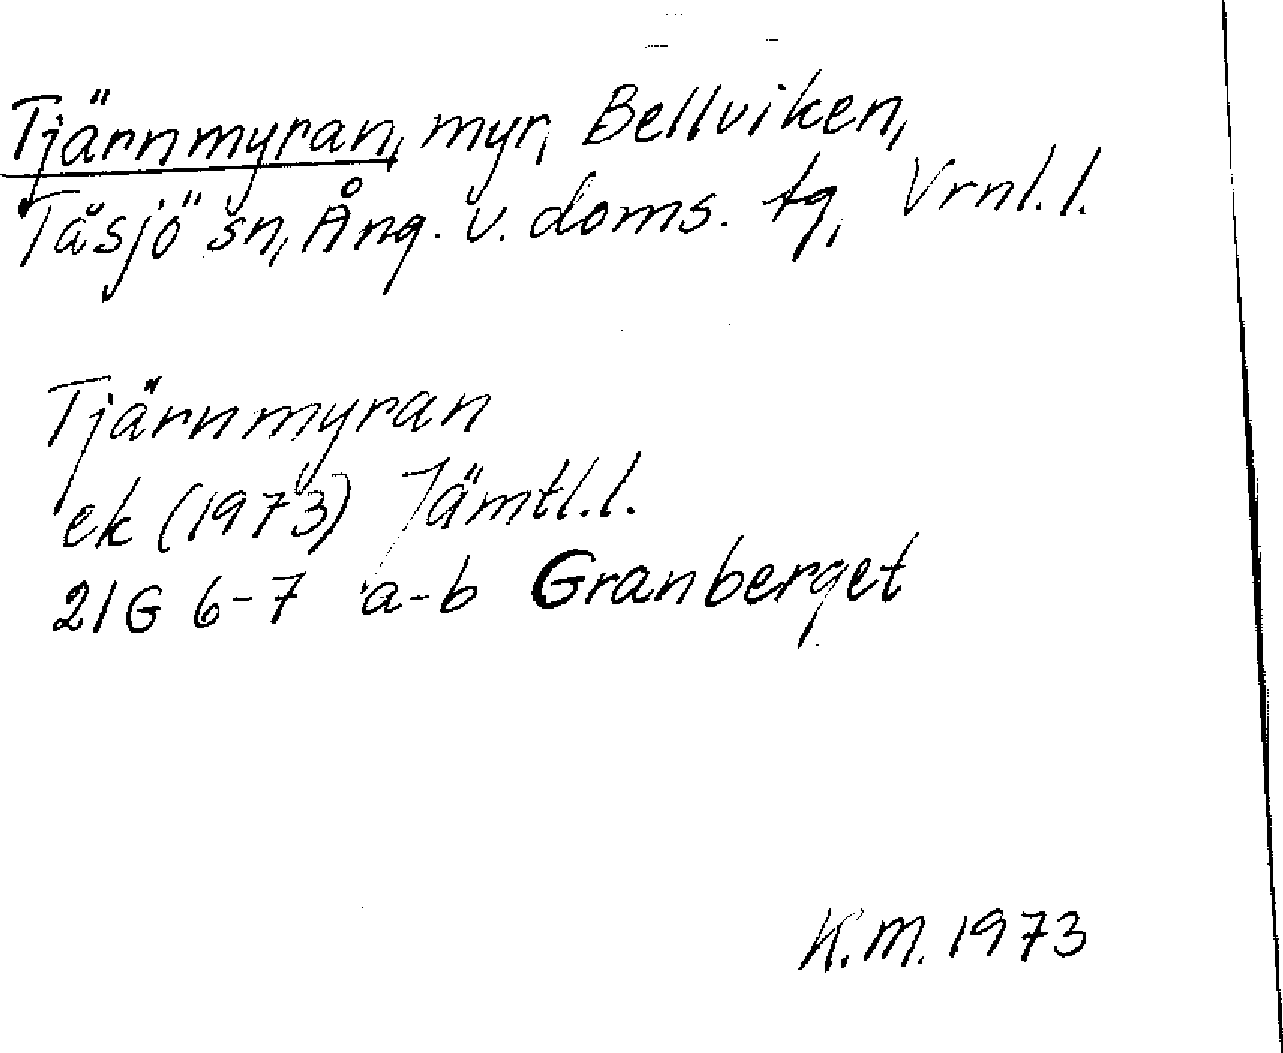 Tjärnmyran, myr, Bellviken,
Tåsjö sn, Ång. v. doms. tg, Vrnl.l.
Tjärnmyran
ek (1973) Jämtl.l.
21G 6-7 a-b Granberget
K.M. 1973